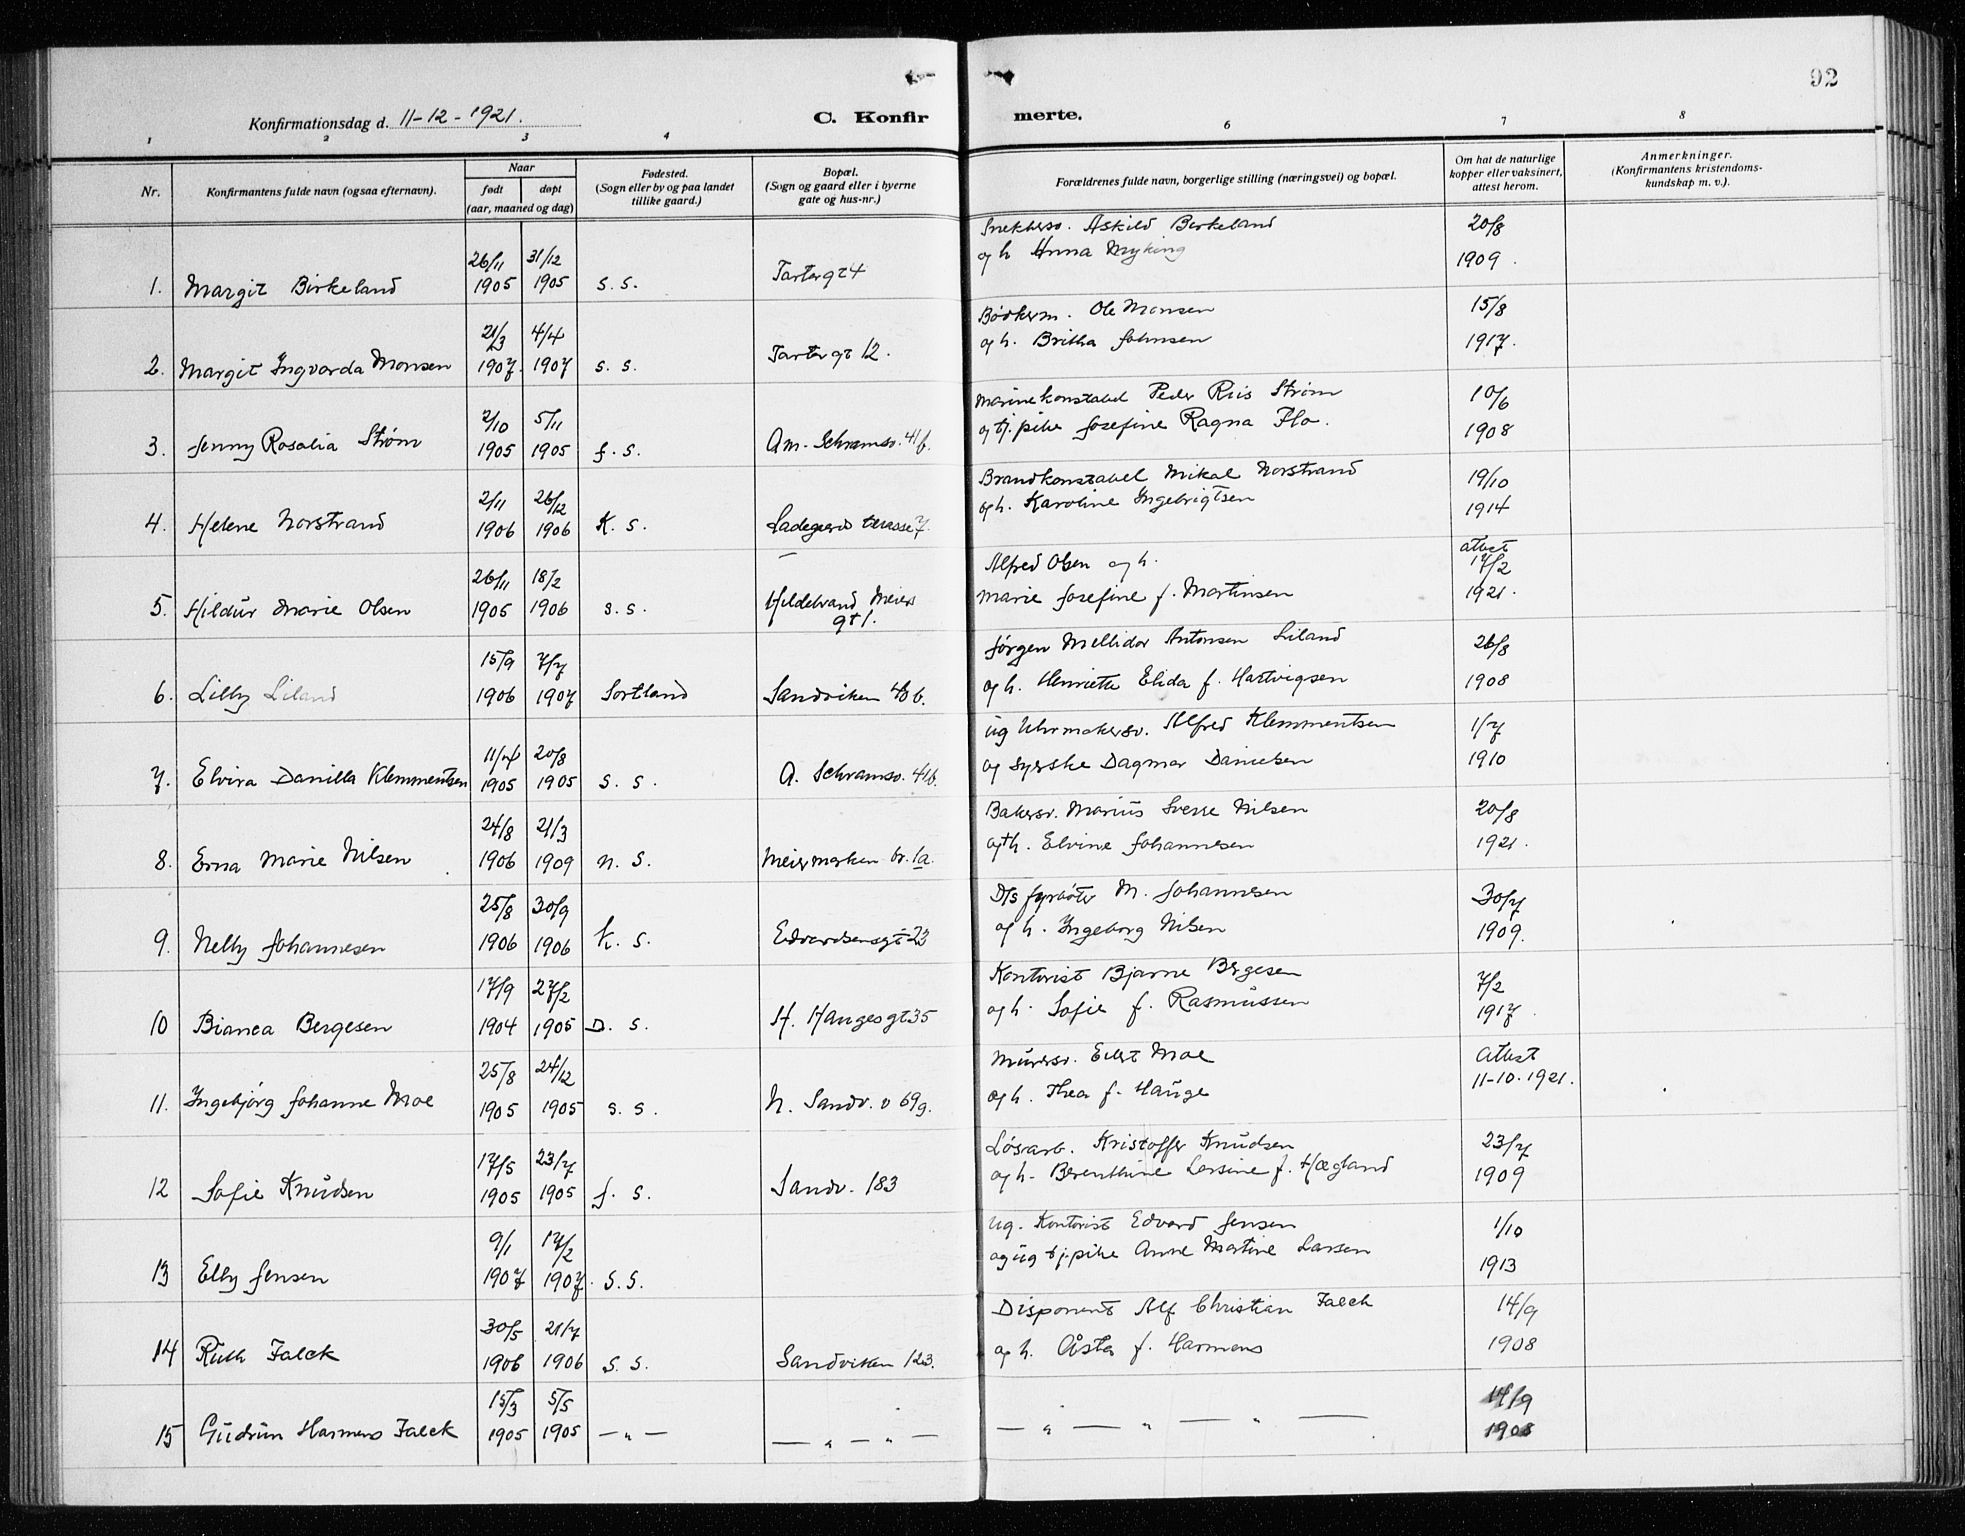 92
Konfirmationsdag d. 11-12-1921.
C. Konfirmerte.
1 2 3 4 6 7 8
Nr.
Konfirmantens fulde navn (ogsaa efternavn).
Naar
født døpt
(aar, maaned og dag)
Fødested.
(Sogn eller by og paa landet
tillike gaard.)
Bopæl.
(Sogn og gaard eller i byerne
gate og hus-nr.)
Forældrenes fulde navn, borgerlige stilling (næringsvei) og bopæl.
Om hat de naturlige
kopper eller vaksinert,
attest herom.
Anmerkninger.
(Konfirmantens kristendoms-
kundskap m. v.).
Snekkersv. Askild Birkeland 20/8
26/11 31/12 og h Anna Myking 1909.
1. Margit Birkeland 1905 1905 S. S. Tartergt 4
Bødkerm. Ole Monsen 15/8
21/3 4/4 og h. Britha Johnsen 1917.
2. Margit Ingvarda Monsen 1907. 1907 S. S. Tartergt 12.
Marinekonstabel Peder Riis Strøm 10/6
2/10 5/11 og tj. pike Josefine Ragna Flo. 1908
3. Jenny Rosalia Strøm 1905 1905 f. S. Am. Schramsv. 41b.
Brandkonstabel Mikal Norstrand 19/10
2/11 26/12 og h. Karoline Ingebrigtsen 1914
4. Helene Norstrand 1906 1906 K. S. Ladegaards terasse 7.
Alfred Olsen og h. attest 17/2
26/11 18/2 Marie Josefine f. Martinsen 1921.
5. Hildur Marie Olsen 1905 1906 S. S. Hildebrand Meiers
gt 1.
Jørgen Mellidor Antonsen Liland 26/8
15/9 7/7 og h. Henriette Elida f. Hartvigsen 1908
6. Lilly Liland 1906 1907 Sortland Sandviken 48 b.
ug Uhrmakersv. Alfred Klemmentsen 1/7
11/4 20/8 og syerske Dagmar Danielsen 1910
7. Elvira Danilla Klemmentsen 1905 1905 S. S. A. Schramsv. 41b.
Bakersv. Marius Sverre Nilsen 20/8
24/8 21/3 og h. Elvine Johannesen 1921.
8. Erna Marie Nilsen 1906 1909 N. S. Meiermarken br. 1a.
D/s fyrbøter M. Johannesen 30/7
25/8 30/9 og h. Ingeborg Nilsen 1909.
9. Nelly Johannesen 1906 1906 K. S. Edvardsensgt 23
Kontorist Bjarne Bergesen 7/2
17/9 27/2 og h. Sofie f. Rasmussen 1917.
10 Bianca Bergesen 1904 1905 D. S. H. Haugesgt 35
Murersv. Evert Moe Attest
25/8 24/12 og h. Thea f. Hauge 11-10.1921.
11. Ingebjørg Johanne Moe 1905 1905 S. S. N. Sandv. v 69g.
Løsarb. Kristoffer Knudsen 23/7
17/5 23/7 og h. Berenthine Larsine f. Hægland 1909
12 Sofie Knudsen 1905 1905 f. S. Sandv. 183
ug. Kontorist Edvard Jensen 1/10
9/1 17/2 og ug tj. pike Anne Martine Larsen 1913
13 Elly Jensen 1907 1907. S. S.
Disponent Alf Christian Falck 14/9
30/5 21/7 og h. Åsta f. Harmens 1908
14 Ruth Falck 1906 1906 S. S. Sandviken 123.
15/3 5/5 14/9
15 Gudrun Harmens Falck 1905 1905 — " — — " — " — — " — " — " — 1908